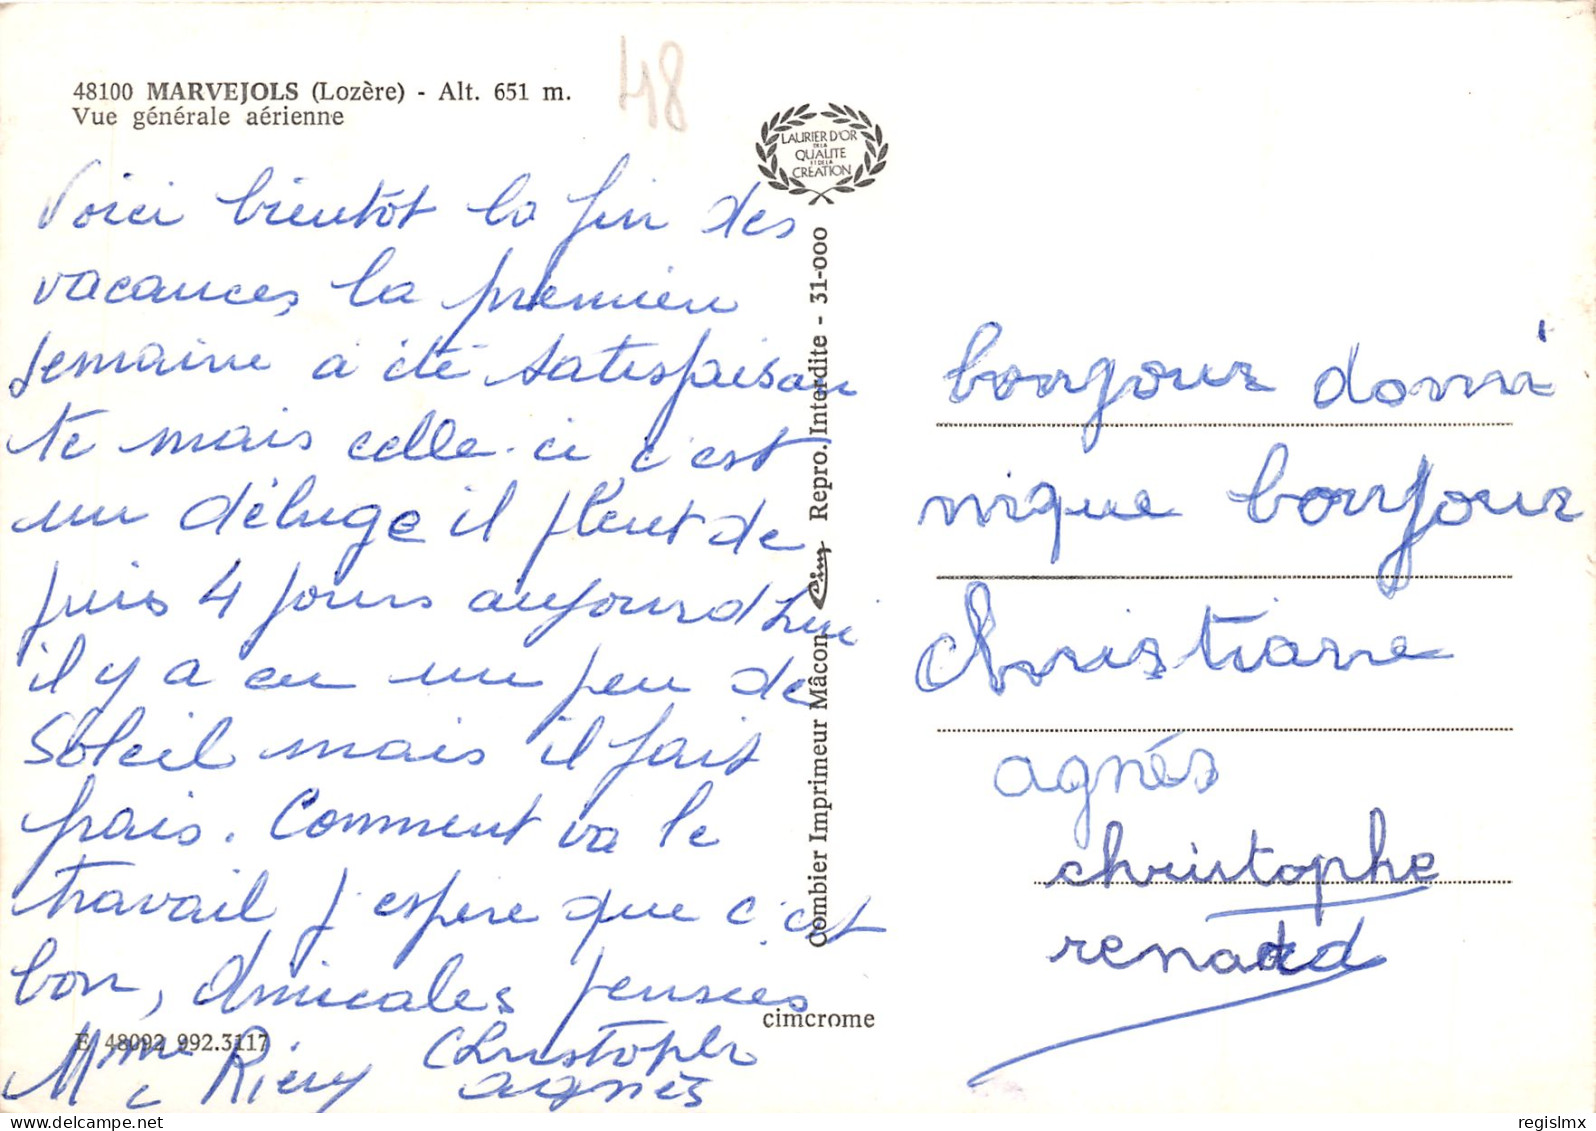 48100 MARVEJOLS (Lozère) - Alt. 651 m.
Vue générale aérienne
48
LAURIER D'OR
DE LA
QUALITE
ET DE LA
CREATION
Voici bientôt la fin des
vacances, la premieu
semaine a été satisfaisan
te mais celle-ci c'est
un déluge il pleut de
puis 4 jours aujourd hui
il y a eu un peu de
soleil mais il fait
frais. Comment va le
travail j'espère que c'est
bon, amicales pensées
E 48092 992.3117
Mme Christophe
agnès
cimcrome
Combier Imprimeur Mâcon Cim Repro. Interdite - 31-000
bonjour domi
nique bonjour
christiane
agnés
christophe
renard
regislmx
www.delcampe.net